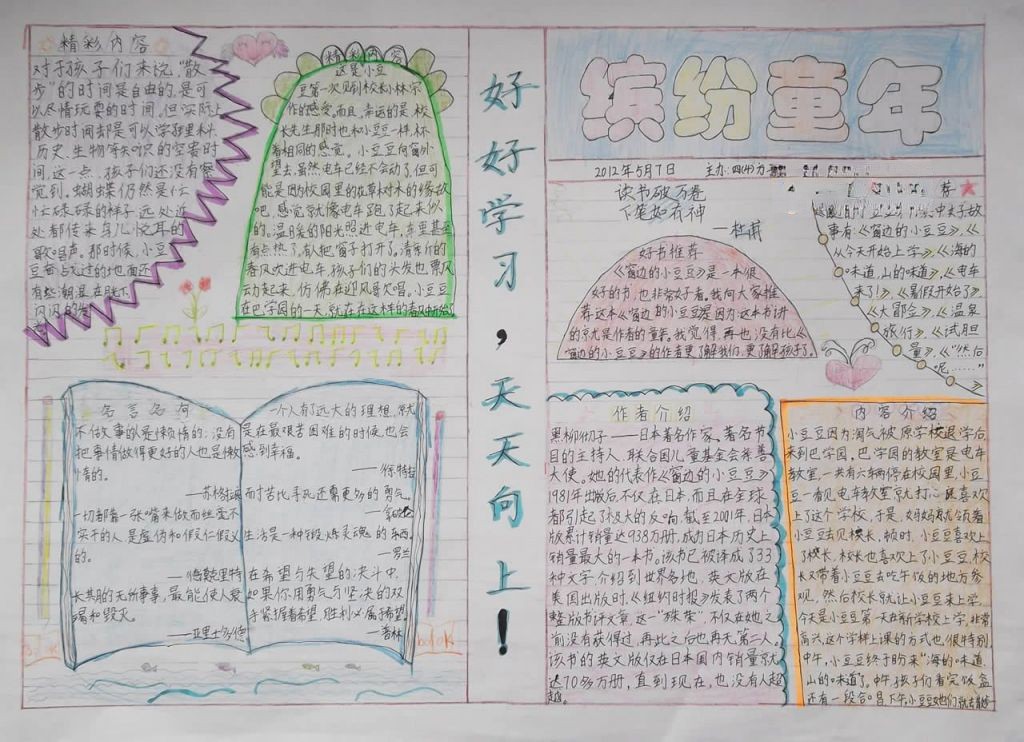 精彩内容
对于孩子们来说,“散
步”的时间是自由的,是可
以尽情玩耍的时间,但实际上
散步时间却是可以学到理科、
历史、生物等知识的宝贵时
间,这一点,孩子们还没有察
觉到。蝴蝶仍然是忙
忙碌碌的样子,远处近
处都传来鸟儿悦耳的
歌唱声。那时候,小豆
豆看
有些潮湿,在
闪闪的
精彩内容
这是小豆
豆第一次见到校长小林宗
作的感觉。而且,幸运的是,校
长先生那时也和小豆豆一样,怀
着相同的感觉。小豆豆向窗外
望去,虽然电车已经不会动了,但可
能是因为校园里的花草树木的缘故
吧,感觉就像电车跑了起来似
的。温暖的阳光照进电车,车里甚至
有些热了,有人把窗子打开了。清新的
春风吹进电车,孩子们的头发也飘风
动起来,仿佛在迎风歌唱。小豆豆
在巴学园的一天,就在在这样的春风中开始
好好学习,天天向上!
缤纷童年
2012年5月7日 主办:四(4)
读书破万卷
下笔如有神
—杜甫
好书推荐
《窗边的小豆豆》是一本很
好的书,也非常好看。我向大家推
荐这本《窗边的小豆豆》是因为这本书讲
的就是作者的童年。我觉得,再也没有比《
窗边的小豆豆》的作者更了解我们,更了解孩子了。
荐
故
事有:《窗边的小豆豆》、《
从今天开始上学》、《海的
味道,山的味道》、《电车
来了!》、《暑假开始了》
《大冒会》、《温泉
旅行》、《试胆
量》、《“然后
呢……”
名言名句
不做事的人是懒惰的;没有
把事情做得更好的人也是懒
惰的。
—苏格拉底
一切都靠一张嘴来做而丝毫不
实干的人,是虚伪和假仁假义
的。
—德谟克里特
长共期的无所事事,最能使人衰
竭和毁灭。
—亚里士多德
一个人有了远大的理想,就
是在最艰苦困难的时候,也会
感到幸福。
—徐特立
耐苦比寻死还需更多的勇气。
—拿破仑
生活是一种锻炼灵魂的东西。
—罗兰
在希望与失望的决斗中,
如果你用勇气与坚决的双
手紧握着希望,胜利必属于希望。
—普林
book
作者介绍
黑柳彻子——日本著名作家、著名节
目的主持人,联合国儿童基金会亲善
大使。她的代表作《窗边的小豆豆》
1981年出版后,不仅在日本,而且在全球
都引起了极大的反响,截至2001年,日本
版累计销量达938万册,成为日本历史上
销量最大的一本书。该书已被译成了33
种文字介绍到世界各地,英文版在
美国出版时,《纽约时报》发表了两个
整版的评文章,这一“殊荣”,不仅在她之
前没有获得过,再此之后也再无第二人。
该书的英文版仅在日本国内销量就
达70多万册,直到现在,也没有人超
越。
内容介绍
小豆豆因为淘气被原学校退学后,
来到巴学园。巴学园的教室是电车
教室,一共有六辆停在校园里,小豆
豆一看见电车教室就打心眼喜欢
上了这个学校,于是,妈妈就领着
小豆去见校长,顿时,小豆喜欢上
了校长,校长也喜欢上了小豆豆。校
长又带着小豆豆去吃午饭的地方参
观。然后校长就让小豆豆来上学,
今天是小豆豆第一天在新学校上学,非常
高兴,这个学样上课的方式也很特别,
中午,小豆豆终于盼来“海的味道,
山的味道”了。中午孩子们看完饭盒
还有一段合唱,下午小豆豆她们就去散步